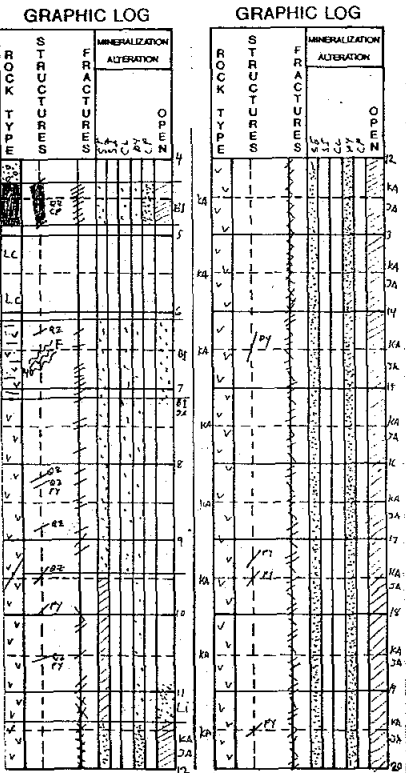 GRAPHIC LOG
ROCK TYPE
STRUCTURES
FRACTURES
MINERALIZATION
ALTERATION
CL
PY
OPEN
4
BI
5
LC
LC
6
QZ
F
BI
7
BI
JA
8
QZ
PY
QZ
9
QZ
PY
10
PY
11
LI
KA
JA
12
GRAPHIC LOG
ROCK TYPE
STRUCTURES
FRACTURES
MINERALIZATION
ALTERATION
OPEN
12
KA
KA
JA
3
KA
KA
JA
14
PY
KA
KA
JA
15
KA
KA
JA
16
KA
KA
JA
17
PY
PY
KA
KA
JA
18
KA
KA
JA
9
PY
KA
KA
JA
20